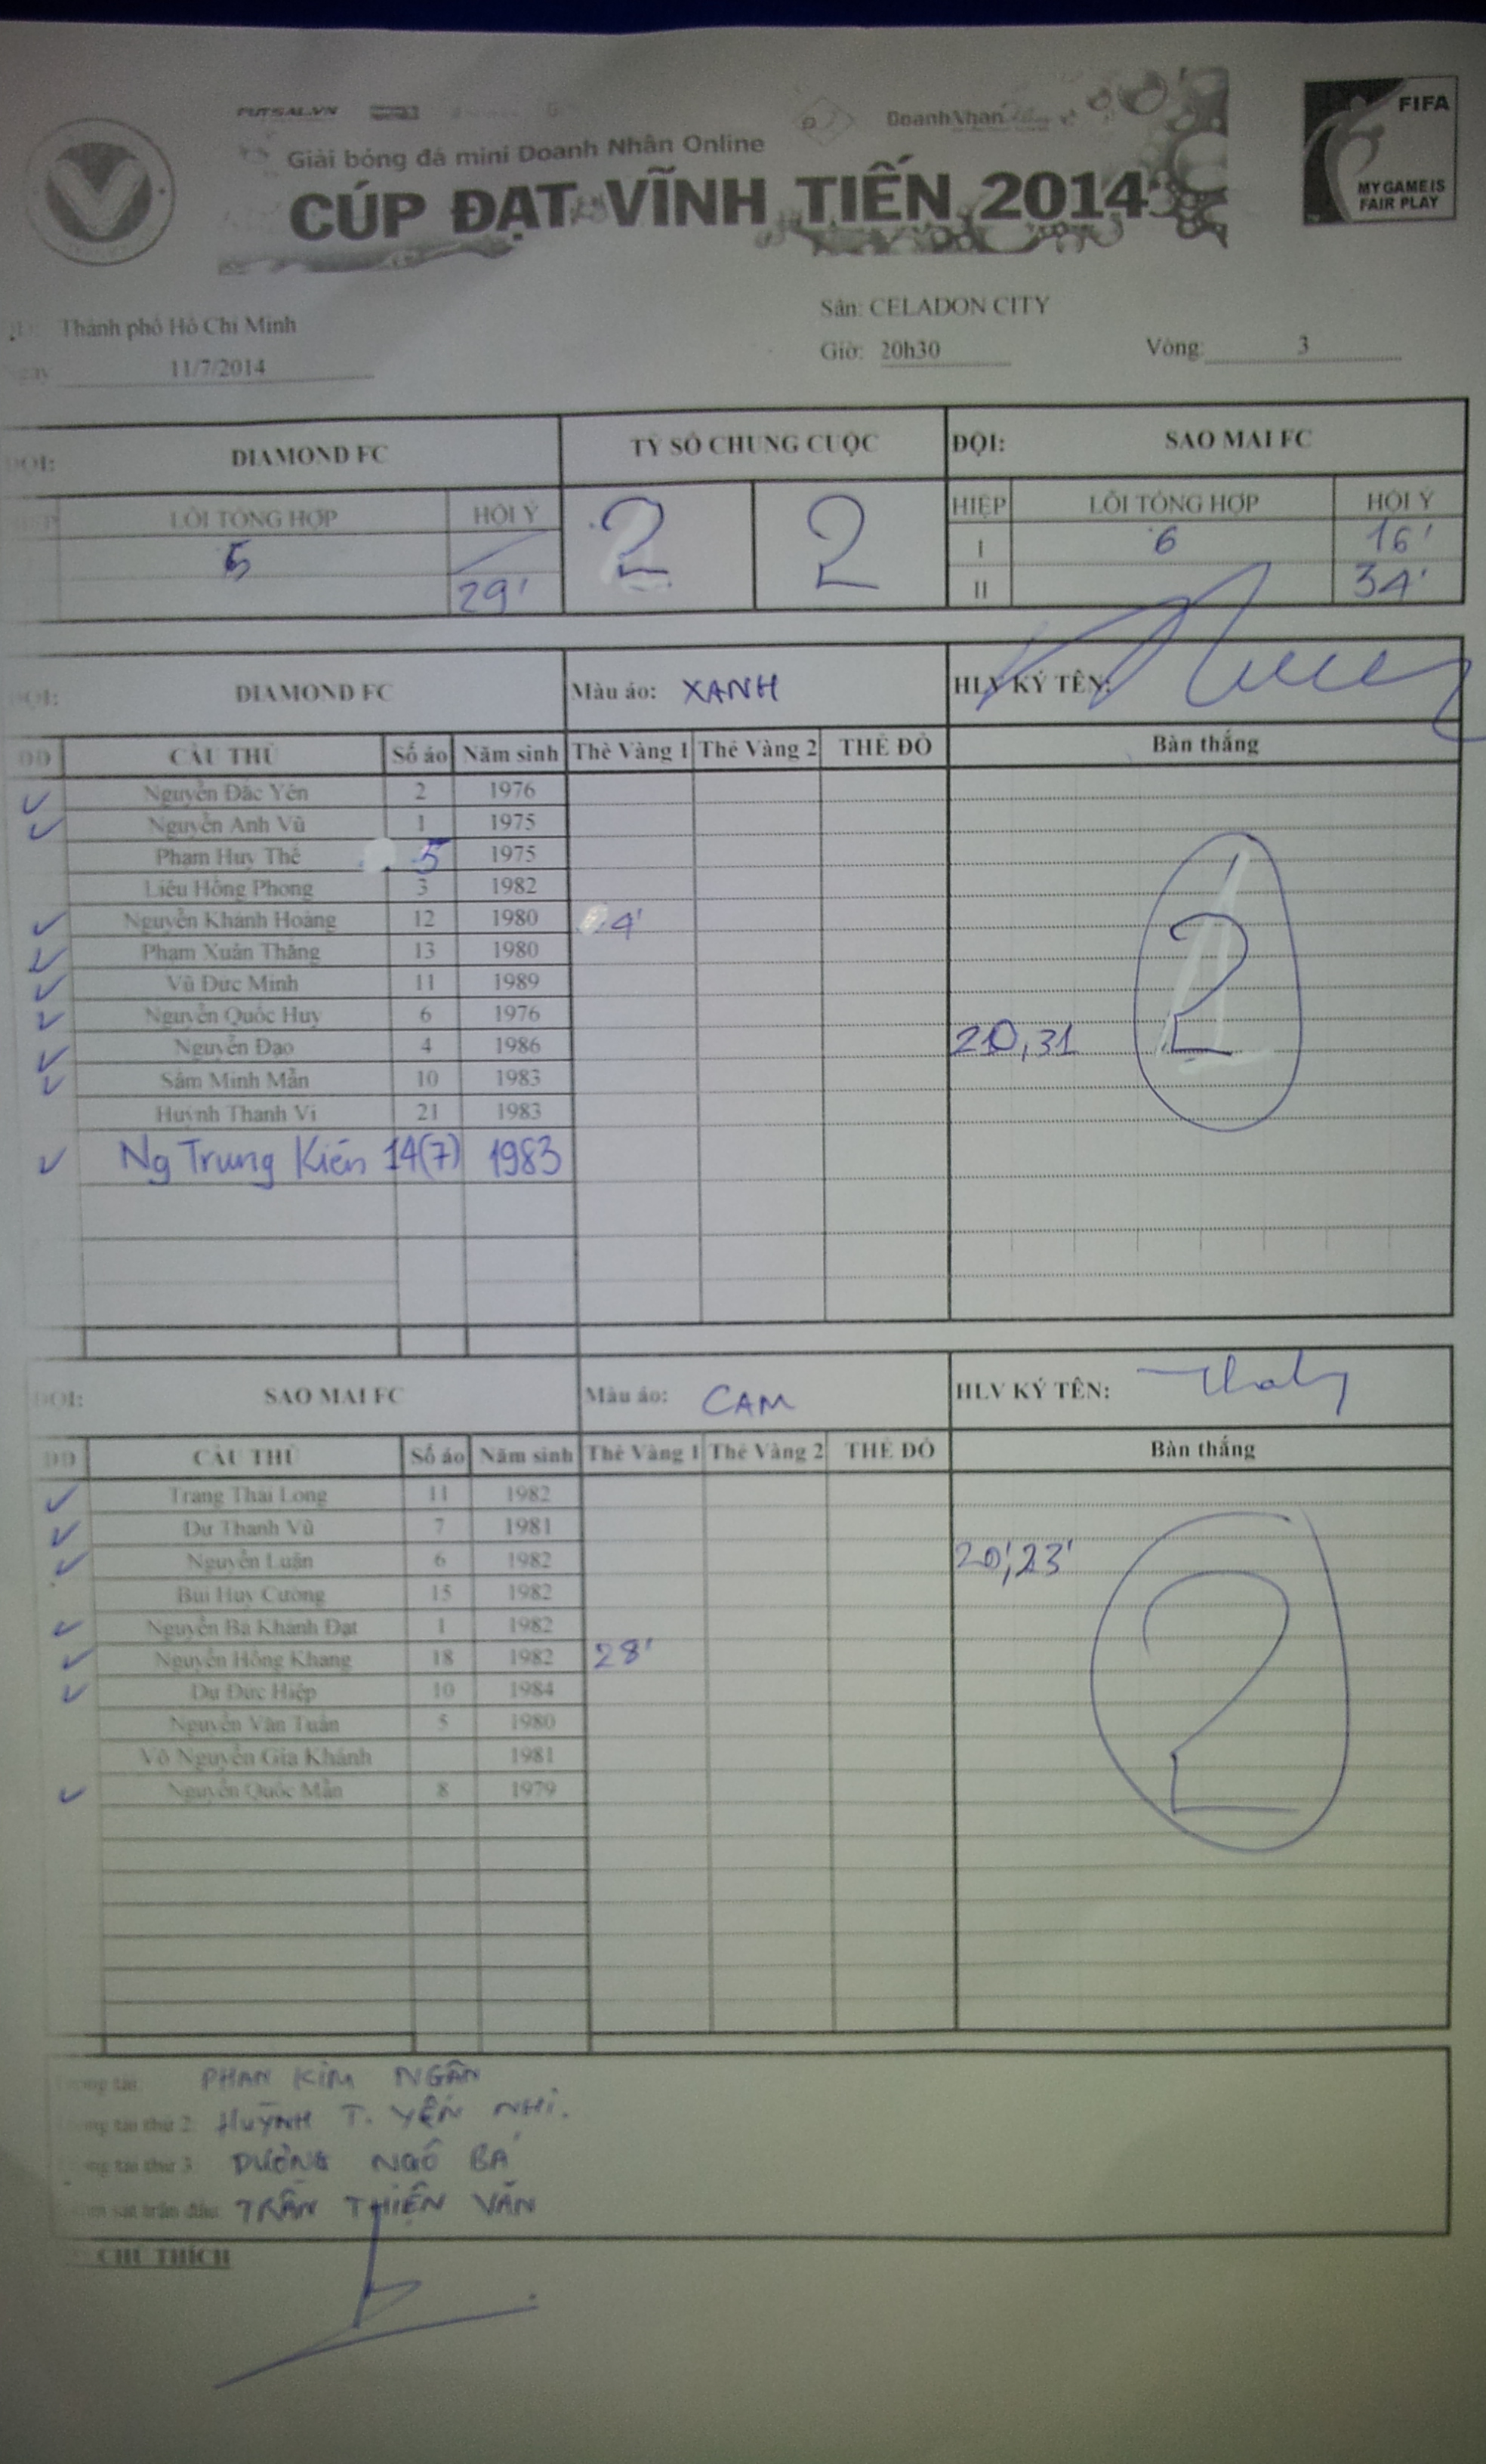 FUTSAL.VN
DoanhNhan
Giải bóng đá mini Doanh Nhân Online
CÚP ĐẠT VĨNH TIẾN 2014
FIFA
MY GAME IS
FAIR PLAY
Thành phố Hồ Chí Minh
Sân: CELADON CITY
11/7/2014
Giờ: 20h30
Vòng: 3
ĐỘI: DIAMOND FC TỶ SỐ CHUNG CUỘC ĐỘI: SAO MAI FC
LỖI TỔNG HỢP HỘI Ý 2 2 HIỆP LỖI TỔNG HỢP HỘI Ý
5 I 6 16'
29' II 34'
ĐỘI: DIAMOND FC Màu áo: XANH HLV KÝ TÊN:
DD CẦU THỦ Số áo Năm sinh Thẻ Vàng 1 Thẻ Vàng 2 THẺ ĐỎ Bàn thắng
Nguyễn Đắc Yên 2 1976
Nguyễn Anh Vũ 1 1975
Phạm Huy Thế 5 1975
Liêu Hồng Phong 3 1982
Nguyễn Khánh Hoàng 12 1980 4'
Phạm Xuân Thăng 13 1980
Vũ Đức Minh 11 1989
Nguyễn Quốc Huy 6 1976
Nguyễn Đạo 4 1986 20,31 2
Sâm Minh Mẫn 10 1983
Huỳnh Thanh Vi 21 1983
Ng Trung Kiên 14(7) 1983
ĐỘI: SAO MAI FC Màu áo: CAM HLV KÝ TÊN:
DD CẦU THỦ Số áo Năm sinh Thẻ Vàng 1 Thẻ Vàng 2 THẺ ĐỎ Bàn thắng
Trang Thái Long 11 1982
Dư Thanh Vũ 7 1981
Nguyễn Luận 6 1982 20',23'
Bùi Huy Cường 15 1982
Nguyễn Bá Khánh Đạt 1 1982
Nguyễn Hồng Khang 18 1982 28' 2
Dư Đức Hiệp 10 1984
Nguyễn Văn Tuấn 5 1980
Võ Nguyễn Gia Khánh 1981
Nguyễn Quốc Mẫn 8 1979
PHAN KIM NGÂN
tài thứ 2: HUỲNH T. YẾN NHI.
tài thứ 3: DƯƠNG NGÔ BÁ
sát trận đấu: TRẦN THIỆN VĂN
CHÚ THÍCH